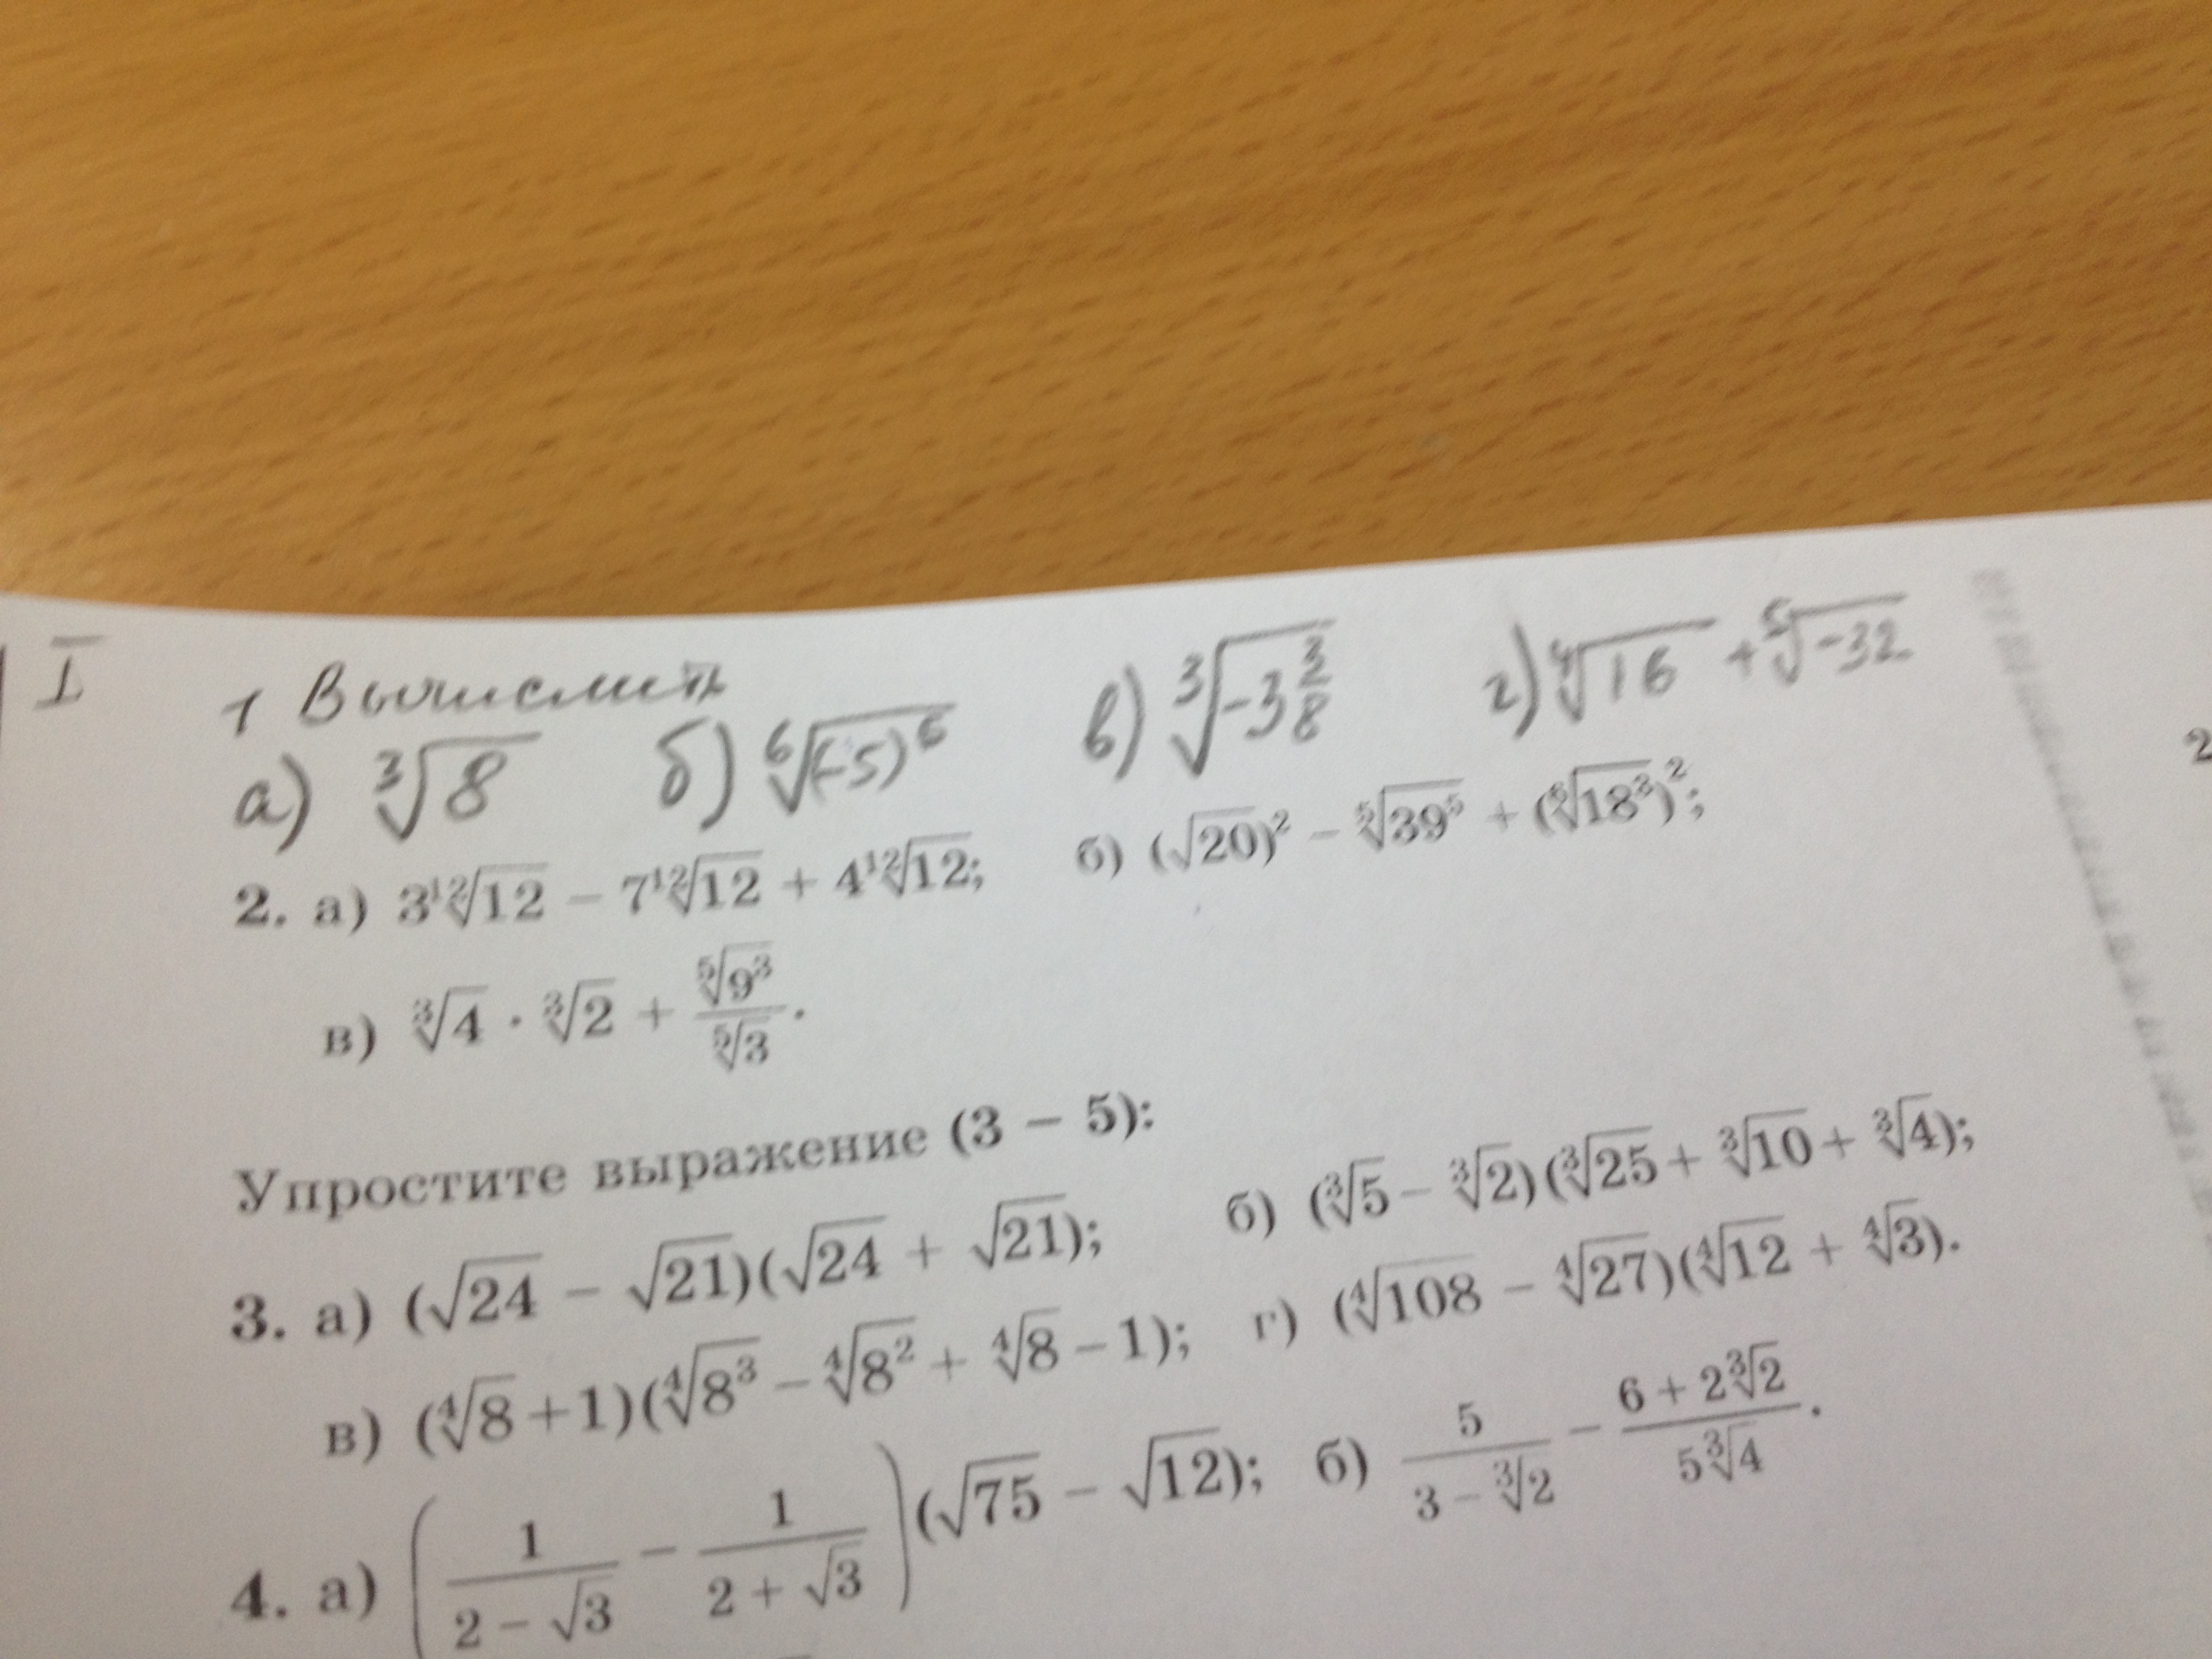 I
1 Вычислить
а) ∛8 б) ⁶√(-5)⁶ в) ∛-3 3/8 г) ⁴√16 + ⁵√-32
2
2. а) 3¹²√12 − 7¹²√12 + 4¹²√12; б) (√20)² − ⁵√39⁵ + (⁶√18³)²;
в) ∛4 · ∛2 + ⁵√9³ / ⁵√3.
Упростите выражение (3 − 5):
3. а) (√24 − √21)(√24 + √21); б) (∛5 − ∛2)(∛25 + ∛10 + ∛4);
в) (⁴√8 + 1)(⁴√8³ − ⁴√8² + ⁴√8 − 1); г) (⁴√108 − ⁴√27)(⁴√12 + ⁴√3).
4. а) (1 / (2 − √3) − 1 / (2 + √3))(√75 − √12); б) 5 / (3 − ∛2) − (6 + 2∛2) / (5∛4).